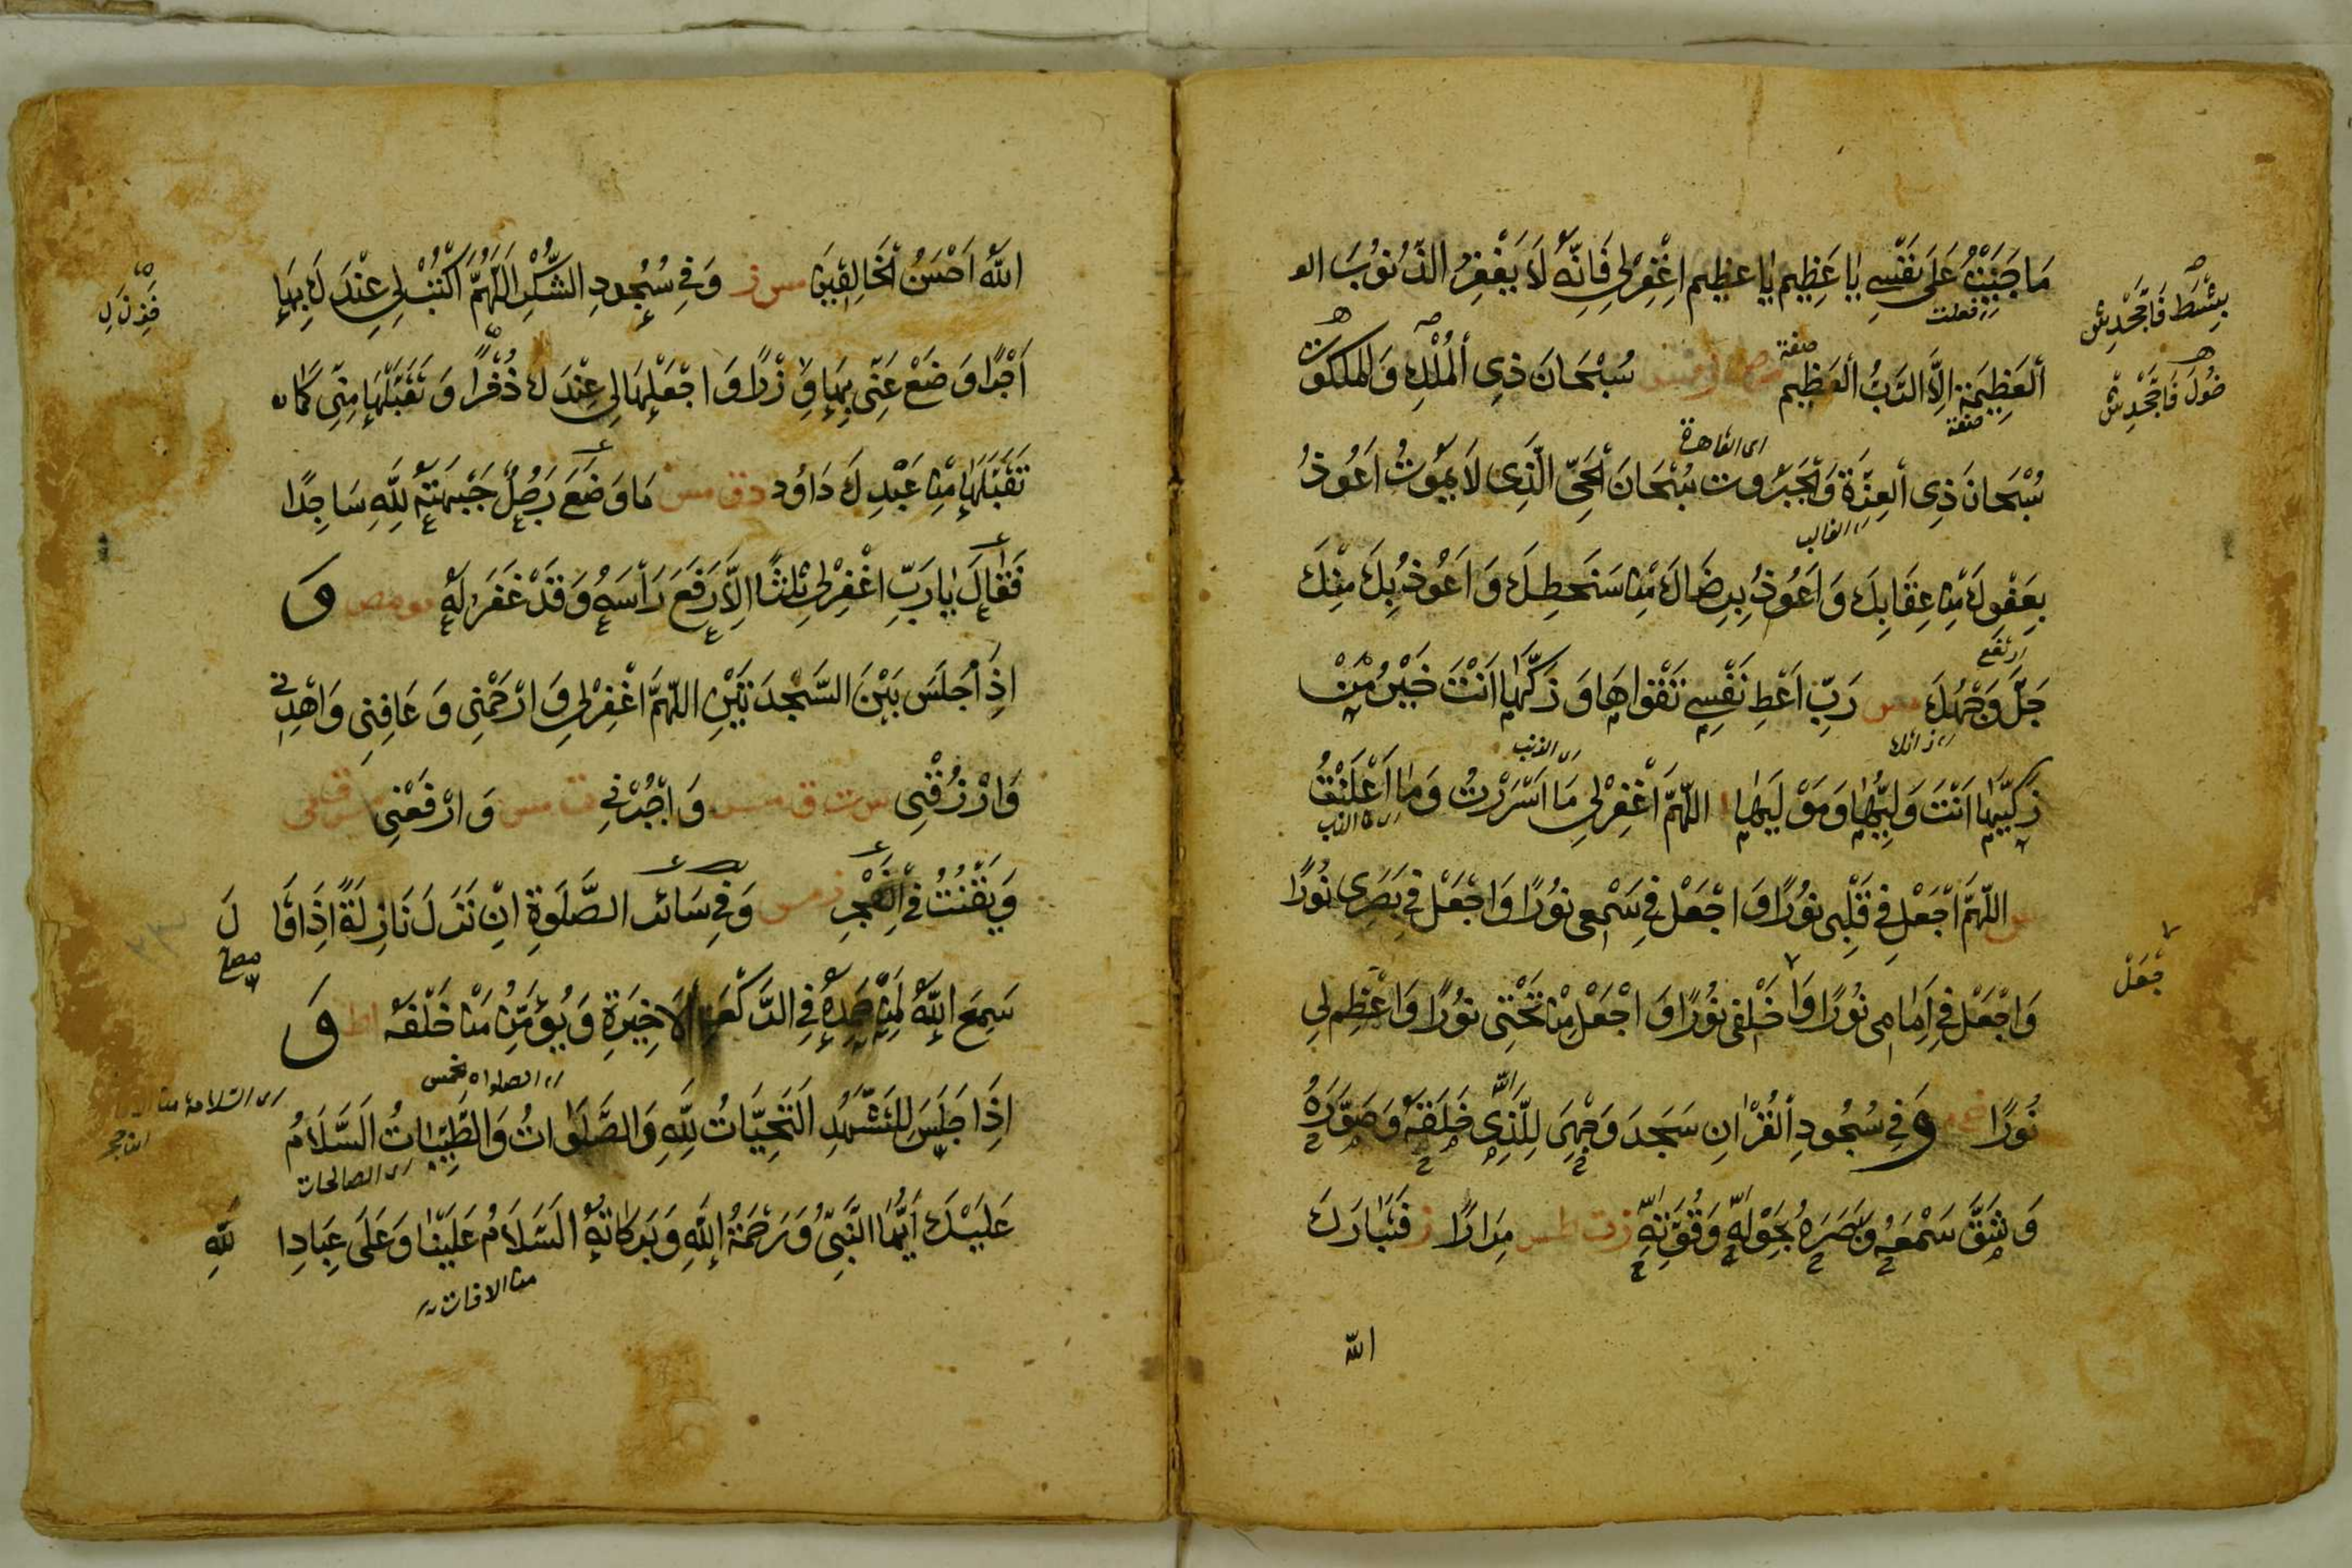 مَا جَنَيْتُ عَلَى نَفْسِي يَا عَظِيم يَا عظيم اِغْفِرْلِي فَاِنَّهٗ لَا يَغْفِرُ الذُّنُوْبَ الـ
فعلت
اَلْعَظِيمَة اِلَّا الرَّبُّ الْعَظِيم مس سُبْحَانَ ذِي الْمُلْكِ وَالْمَلَكُوْت
صفة
صفة
سُبْحَانَ ذِي الْعِزَّةِ وَالْجَبَرُوت سُبْحَانَ الْحَيِّ الَّذِي لَا يَمُوْتُ اَعُوْذُ
اى القاهرة
الغالب
بِعَفْوِكَ مِنْ عِقَابِكَ وَاَعُوْذُ بِرِضَاكَ مِنْ سَخَطِكَ وَاَعُوْذُ بِكَ مِنْكَ
ارتفع
جَلَّ وَجْهُكَ مس رَبِّ اَعْطِ نَفْسِي تَقْوَاهَا وَزَكِّهَا اَنْتَ خَيْرُ مَنْ
ذاتك
زَكّٰيهَا اَنْتَ وَلِيُّهَا وَمَوْلٰيهَا ا اَللّٰهُمَّ اغْفِرْلِي مَا اَسْرَرْتُ وَمَا اَعْلَنْتُ
اى الذنب
مص اَللّٰهُمَّ اجْعَلْ فِي قَلْبِي نُوْرًا وَاجْعَلْ فِي سَمْعِي نُوْرًا وَاجْعَلْ فِي بَصَرِي نُوْرًا
وَاجْعَلْ فِي اَمَامِي نُوْرًا وَا خَلْفِي نُوْرًا وَاجْعَلْ مِنْ تَحْتِي نُوْرًا وَاَعْظِمْ لِي
جْعَلْ
نُوْرًا وَفِي سُجُودِ الْقُرْاٰنِ سَجَدَ وَجْهِيَ لِلَّذِي خَلَقَهٗ وَصَوَّرَهُ
لله
وَشَقَّ سَمْعَهُ وَبَصَرَهُ بِحَوْلِهٖ وَقُوَّتِهٖ مِرَارًا فَتَبَارَكَ
الله
اللّٰهُ اَحْسَنُ الْخَالِقِيْنَ مس وَفِي سُجُودِ الشُّكْرِ اَللّٰهُمَّ اكْتُبْ لِي عِنْدَكَ بِهَا
اَجْرًا وَضَعْ عَنِّي بِهَا وِزْرًا وَاجْعَلْهَا لِي عِنْدَكَ ذُخْرًا وَتَقَبَّلْهَا مِنِّي كَمَا
تَقَبَّلْتَهَا مِنْ عَبْدِكَ دَاوُد ت ق مس مَا وَضَعَ رَجُلٌ جَبْهَتَهٗ لِلّٰهِ سَاجِدًا
فَقَالَ يَا رَبِّ اغْفِرْلِي ثَلٰثًا اِلَّا رَفَعَ رَأْسَهُ وَقَدْ غَفَرَ لَهٗ مو مص وَ
اِذَا جَلَسَ بَيْنَ السَّجْدَتَيْنِ اللّٰهُمَّ اغْفِرْلِي وَارْحَمْنِي وَعَافِنِي وَاهْدِنِي
وَارْزُقْنِي د ت ق مس وَاجْبُرْنِي ت مس وَارْفَعْنِي مس ق
وَيَقْنُتُ فِي الْفَجْرِ ر مس وَفِي سَائِر الصَّلَوٰةِ اِنْ نَزَلَ نَازِلَةً اِذَا قَالَ
سَمِعَ اللّٰهُ لِمَنْ حَمِدَهٗ فِي الرَّكْعَةِ الْاَخِيْرَةِ وَيُؤَمِّنُ مَنْ خَلْفَهٗ وَ
اِذَا جَلَسَ لِلتَّشَهُّدِ اَلتَّحِيَّاتُ لِلّٰهِ وَالصَّلَوٰاتُ وَالطَّيِّبَاتُ اَلسَّلَامُ
اى الصالحات
عَلَيْكَ اَيُّهَا النَّبِيُّ وَرَحْمَةُ اللّٰهِ وَبَرَكَاتُهٗ السَّلَامُ عَلَيْنَا وَعَلَى عِبَادِ اللّٰهِ
من الافات